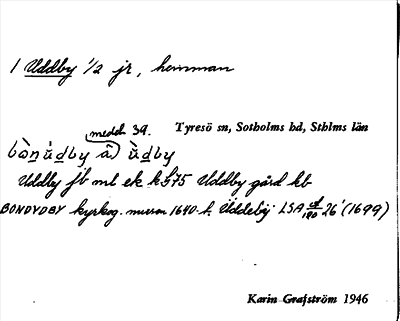 1 Uddby 1/2 jr, hemman
medd. 39. Tyresö sn, Sotholms hd, Sthlms län
bònu̇dby â) u̇̀dby
Uddby jb ml ek k 575 Uddby gård kb
BONDVDBY kyrkog. muren 1640-t. Uddeby LSA 26' (1699)
Karin Grafström 1946